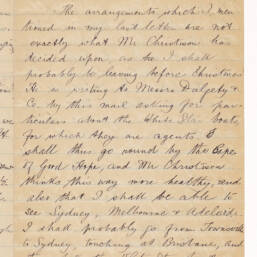 The arrangements which I men
tioned in my last letter are not
exactly what Mr Christison has
decided upon as I shall
probably be leaving before Christmas
He is writing to Messrs Dalgety &
Co. by this mail asking for par
ticulars about the White Star boats,
for which they are agents. I
shall thus go round by the Cape
of Good Hope, and Mr Christison
thinks this way more healthy, and
also that I shall be able to
see Sydney, Melbourne & Adelaide.
I shall probably go from Townsville
to Sydney, touching at Brisbane, and